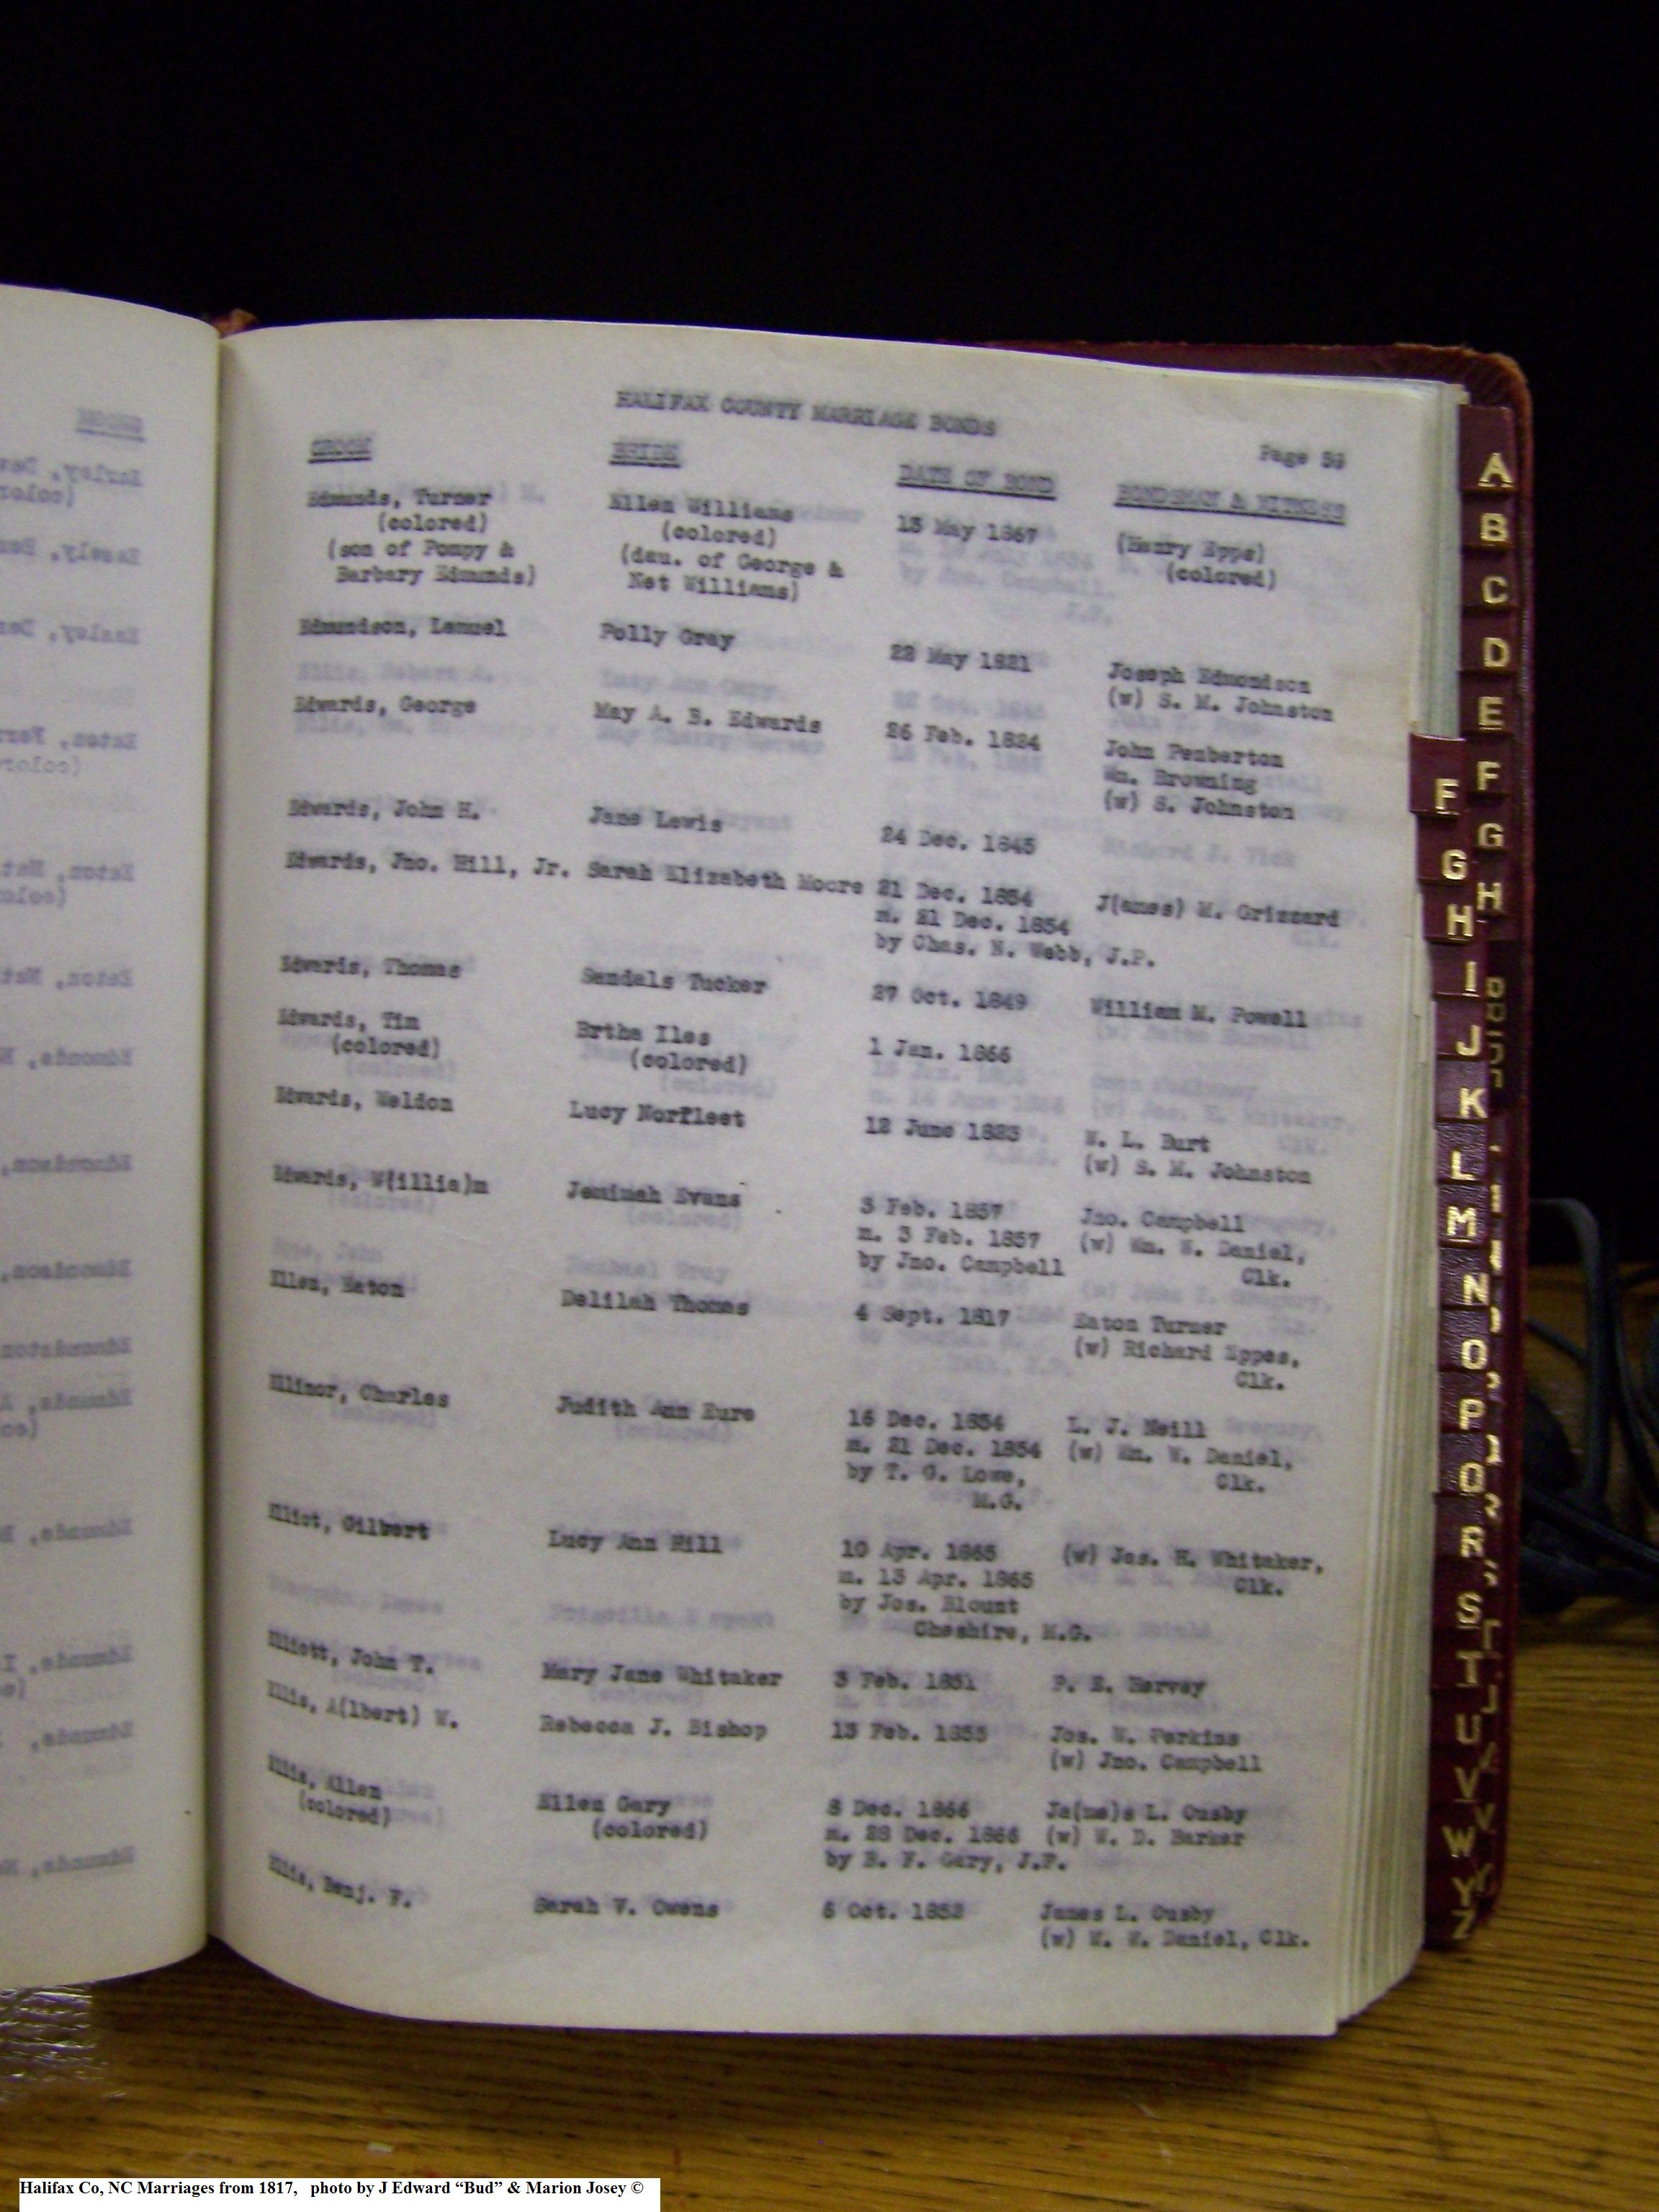 HALIFAX COUNTY MARRIAGE BONDS
Page 59
GROOM BRIDE DATE OF BOND BONDSMAN & WITNESS
Edmunds, Turner Ellen Williams 13 May 1867 (Henry Epps)
(colored) (colored) (colored)
(son of Pompy & (dau. of George &
Barbary Edmunds) Net Williams)
Edmundson, Lemuel Polly Gray 22 May 1821 Joseph Edmondson
(w) S. M. Johnston
Edwards, George May A. B. Edwards 26 Feb. 1824 John Penberton
Wm. Browning
(w) S. Johnston
Edwards, John H. Jane Lewis 24 Dec. 1845
Edwards, Jno. Hill, Jr. Sarah Elizabeth Moore 21 Dec. 1854 J(ames) M. Grizzard
m. 21 Dec. 1854
by Chas. N. Webb, J.P.
Edwards, Thomas Sandals Tucker 27 Oct. 1849 William M. Powell
Edwards, Tim Ertha Iles 1 Jan. 1866
(colored) (colored)
Edwards, Weldon Lucy Norfleet 12 June 1823 W. L. Burt
(w) S. M. Johnston
Edwards, W(illia)m Jemimah Evans 3 Feb. 1857 Jno. Campbell
m. 3 Feb. 1857 (w) Wm. W. Daniel,
by Jno. Campbell Clk.
Ellen, Eaton Delilah Thomas 4 Sept. 1817 Eaton Turner
(w) Richard Eppes,
Clk.
Ellinor, Charles Judith Ann Eure 16 Dec. 1854 L. J. Neill
m. 21 Dec. 1854 (w) Wm. W. Daniel,
by T. G. Lowe, Clk.
M.G.
Elliot, Gilbert Lucy Ann Hill 10 Apr. 1865 (w) Jas. H. Whitaker,
m. 13 Apr. 1865 Clk.
by Jos. Blount
Cheshire, M.G.
Elliott, John T. Mary Jane Whitaker 3 Feb. 1851 P. E. Harvey
Ellis, A(lbert) W. Rebecca J. Bishop 13 Feb. 1855 Jos. W. Perkins
(w) Jno. Campbell
Ellis, Allen Ellen Gary 8 Dec. 1866 Ja(me)s L. Ousby
(colored) (colored) m. 28 Dec. 1866 (w) W. D. Barker
by B. F. Gary, J.P.
Ellis, Benj. F. Sarah V. Owens 6 Oct. 1852 James L. Ousby
(w) W. W. Daniel, Clk.
A
B
C
D
E
F
G
H
F
G
H
I
J
K
L
M
N
O
P
Q
R
S
T
U
V
W
Y
Z
Halifax Co, NC Marriages from 1817, photo by J Edward “Bud” & Marion Josey ©